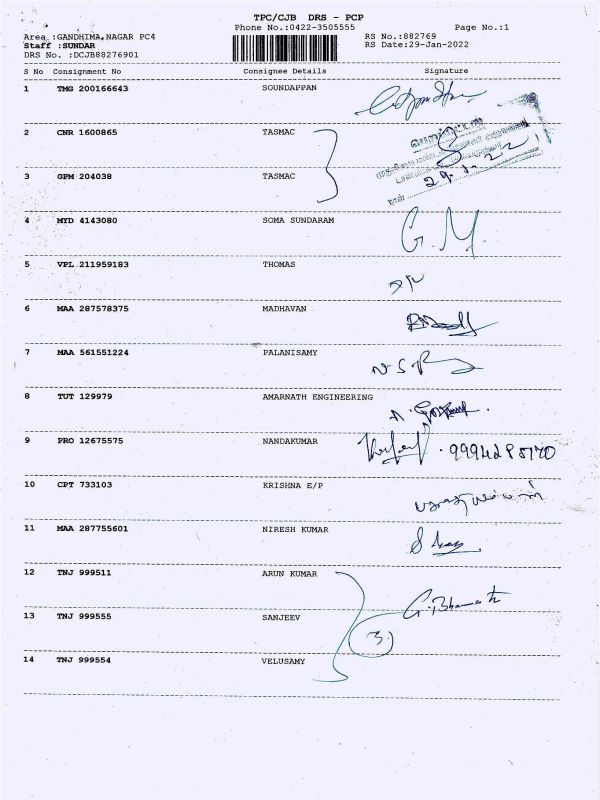 TPC/CJB DRS - PCP
Phone No.:0422-3505555 Page No.:1
Area :GANDHIMA.NAGAR PC4 RS No.:882769
Staff :SUNDAR RS Date:29-Jan-2022
DRS No. :DCJB88276901
S No Consignment No Consignee Details Signature
1 TMG 200166643 SOUNDAPPAN
2 CNR 1600865 TASMAC
3 GPM 204038 TASMAC
29.1.22
4 MYD 4143080 SOMA SUNDARAM G.M.
5 VPL 211959183 THOMAS
6 MAA 287578375 MADHAVAN
7 MAA 561551224 PALANISAMY
8 TUT 129979 AMARNATH ENGINEERING
9 PRO 12675575 NANDAKUMAR
10 CPT 733103 KRISHNA E/P
11 MAA 287755601 NIRESH KUMAR
12 TNJ 999511 ARUN KUMAR
13 TNJ 999555 SANJEEV
3
14 TNJ 999554 VELUSAMY